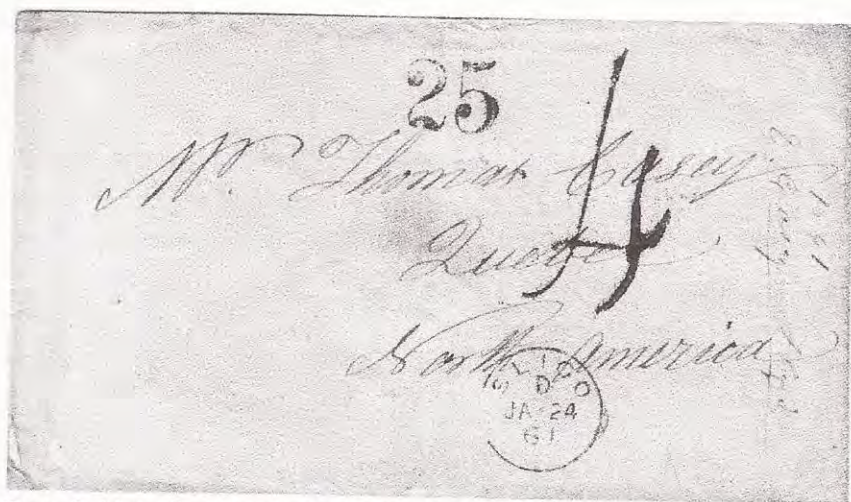 25
4
Mr. Thomas Casey
Quebec
North America
SLIGO
D
JA 24
61